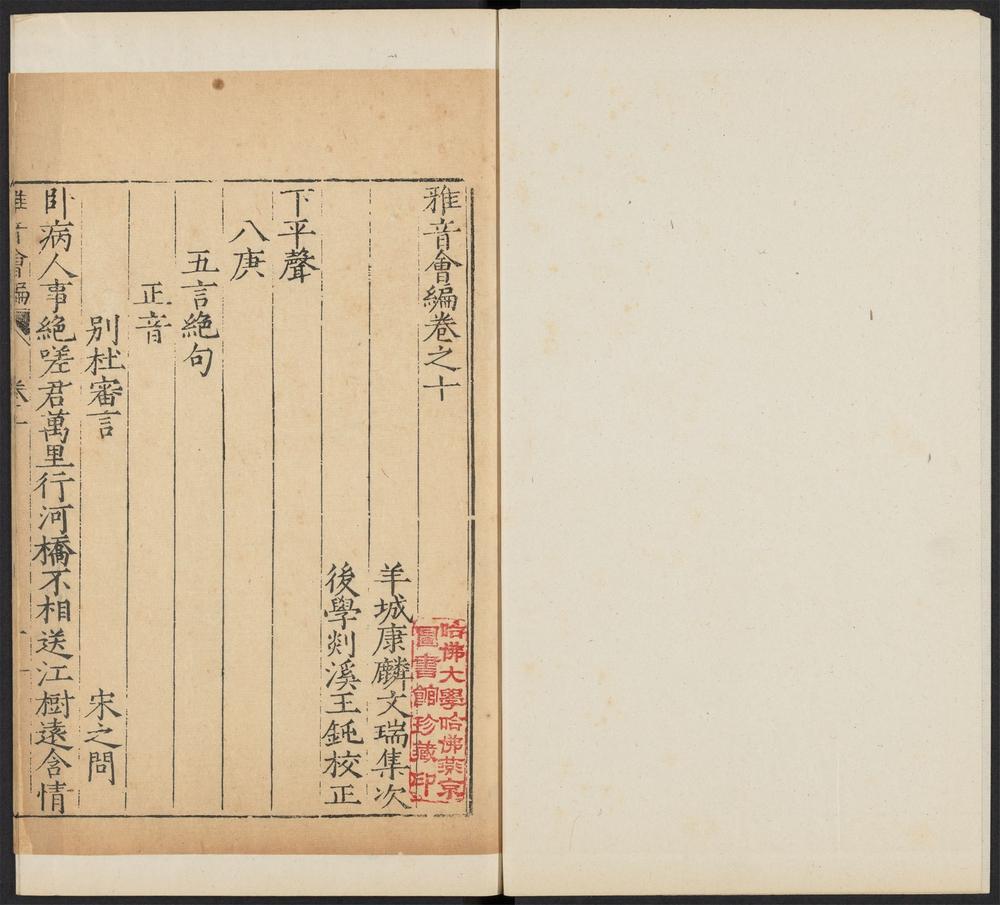 雅音會編卷之十
羊城康麟文瑞集次
後學剡溪王鈍校正
下平聲
八庚
五言絶句
正音
别杜審言
宋之問
卧病人事絶嗟君萬里行河橋不相送江樹遠含情
雅音會編
卷十
哈佛大學哈佛燕京
圖書館珍藏印